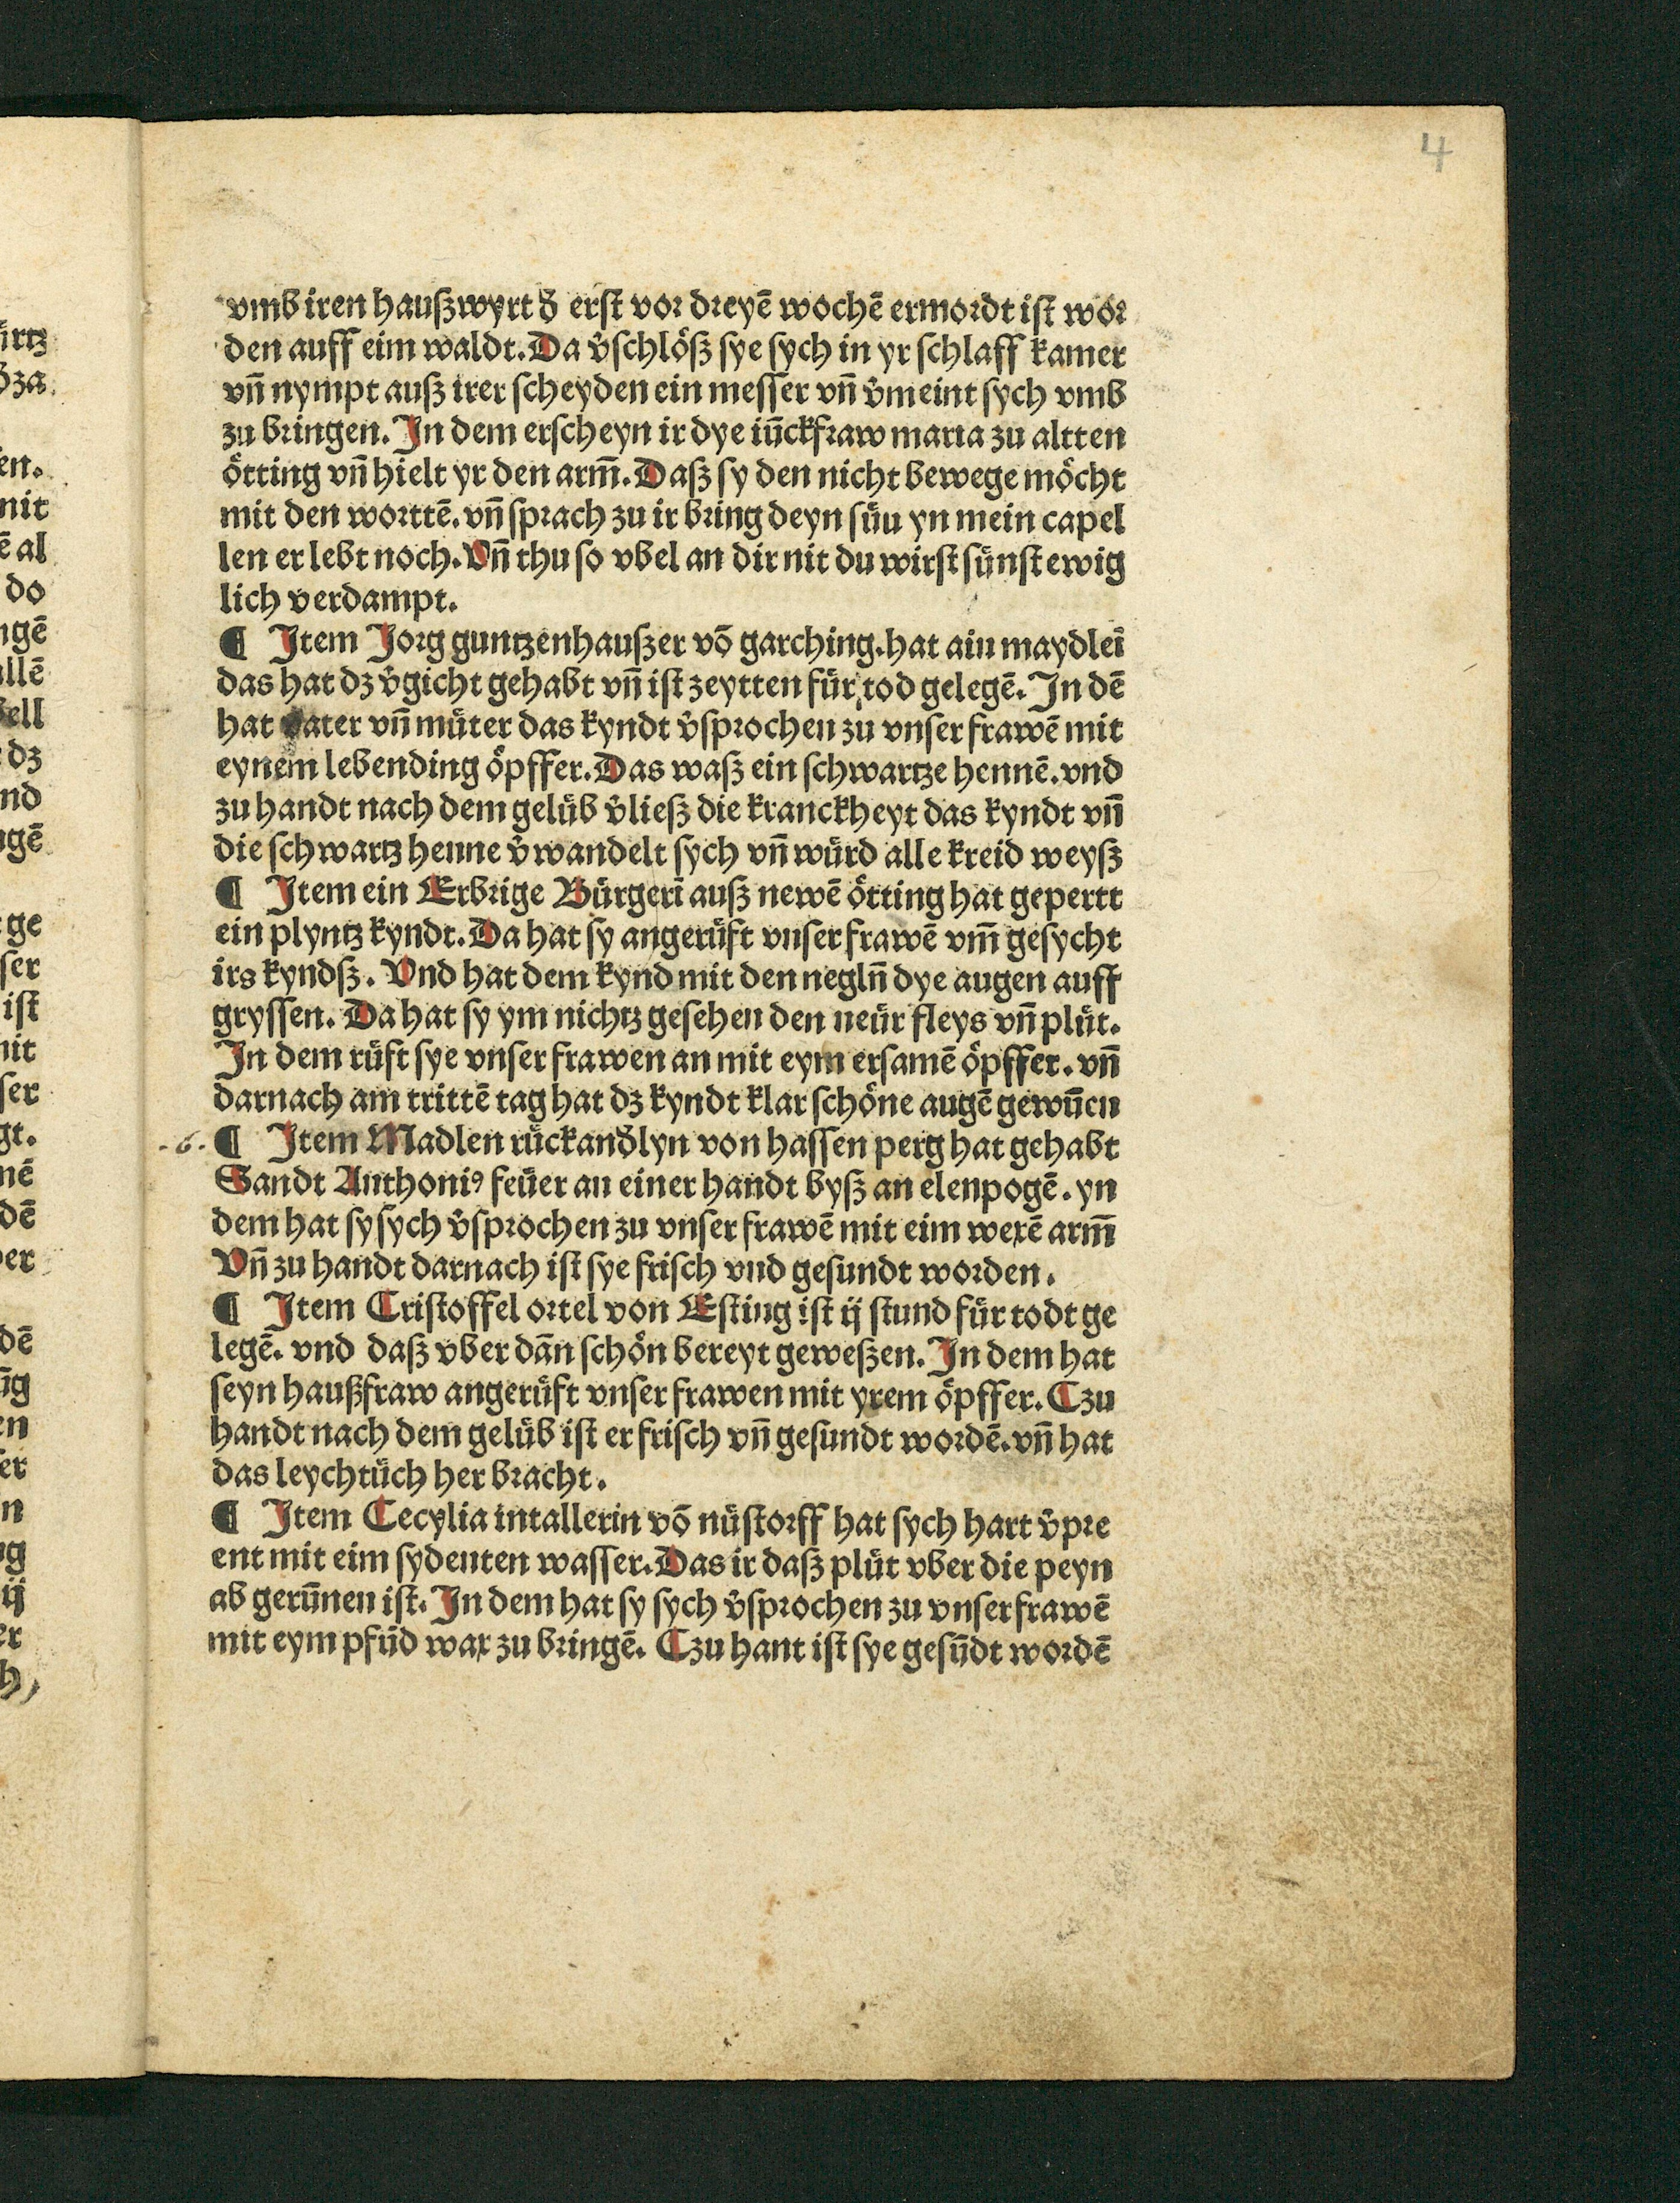 4
vmb iren haußwyrt d̕ erst vor dreyē wochē ermordt ist wor
den auff eim waldt. Da v̕schlöß sye sych in yr schlaff kamer
vn̄ nympt auß irer scheyden ein messer vn̄ v̕meint sych vmb
zu bringen. In dem erscheyn ir dye iūckfraw maria zu altten
ötting vn̄ hielt yr den arm̄. Daß sy den nicht bewege möcht
mit den worttē. vn̄ sprach zu ir bring deyn süu yn mein capel
len er lebt noch. Vn̄ thu so vbel an dir nit du wirst sünst ewig
lich verdampt.
¶ Item Jorg guntzenhaußer vō garching. hat aiu maydleī
das hat dz v̕gicht gehabt vn̄ ist zeytten für tod gelegē. In dē
hat vater vn̄ müter das kyndt v̕sprochen zu vnser frawē mit
eynem lebending öpffer. Das waß ein schwartze hennē. vnd
zu handt nach dem gelüb v̕ließ die kranckheyt das kyndt vn̄
die schwartz henne v̕wandelt sych vn̄ würd alle kreid weyß
¶ Item ein Erbrige Bürgerī auß newē ötting hat gepertt
ein plyntz kyndt. Da hat sy angerüft vnser frawē vm̄ gesycht
irs kyndß. Vnd hat dem kynd mit den negln̄ dye augen auff
gryssen. Da hat sy ym nichtz gesehen den neür fleys vn̄ plüt.
In dem rüft sye vnser frawen an mit eym ersamē öpffer. vn̄
darnach am trittē tag hat dz kyndt klar schöne augē gewūen
-6. ¶ Item Madlen rückand̕lyn von hassen perg hat gehabt
Sandt Anthoniꝰ feüer au einer handt byß an elenpogē. yn
dem hat sy sych v̕sprochen zu vnser frawē mit eim wexē arm̄
Vn̄ zu handt darnach ist sye frisch vnd gesundt worden.
¶ Item Cristoffel ortel von Esting ist ij stund für todt ge
legē. vnd daß vber dān schön bereyt geweßen. In dem hat
seyn haußfraw angerüft vnser frawen mit yrem öpffer. Czu
handt nach dem gelüb ist er frisch vn̄ gesundt wordē. vn̄ hat
das leychtüch her bracht.
¶ Item Cecylia intallerin vō nüstorff hat sych hart v̕pre
ent mit eim sydenten wasser. Das ir daß plüt vber die peyn
ab gerūnen ist. In dem hat sy sych v̕sprochen zu vnser frawē
mit eym pfūd wax zu bringē. Czu hant ist sye gesūdt wordē